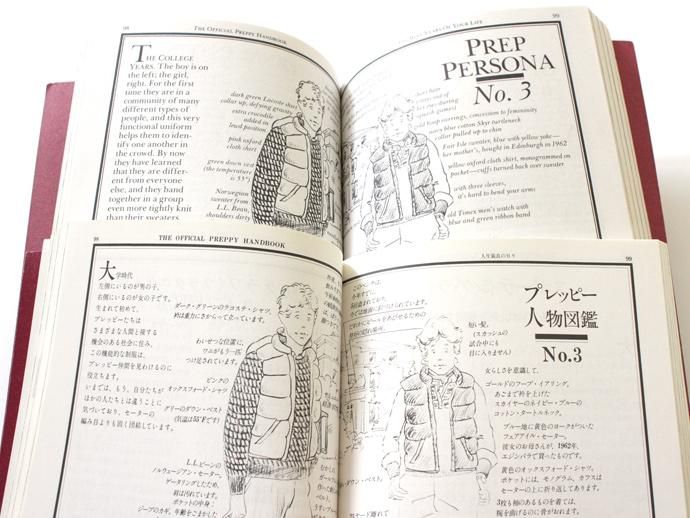 98
THE OFFICIAL PREPPY HANDBOOK
THE COLLEGE
YEARS. The boy is on
the left; the girl,
right. For the first
time they are in a
community of many
different types of
people, and this very
functional uniform
helps them to
identify one another
in the crowd. By now
they have learned
that they are differ-
ent from everyone
else, and they band
together in a group
even more tightly knit
than their sweaters.
dark green Lacoste shirt,
collar up, defying gravity
extra crocodile
added in
lewd position
pink oxford
cloth shirt
green down vest
(the temperature
is 55°)
Norwegian
sweater from
L.L. Bean,
shoulders dirty
YEARS OF YOUR LIFE
99
PREP
PERSONA
No. 3
short hair
squash game)
hoop earrings, concession to femininity
navy blue cotton Skyr turtleneck
collar pulled up to chin
Fair Isle sweater, blue with yellow yoke—
her mother's, bought in Edinburgh in 1962
yellow oxford cloth shirt, monogrammed on
pocket—cuffs turned back over sweater
with three sleeves,
it's hard to bend your arms
old Timex men's watch with
blue and green ribbon band
98
THE OFFICIAL PREPPY HANDBOOK
大学時代
左側にいるのが男の子、
右側にいるのが女の子です。
生まれて初めて、
プレッピーたちは
さまざまな人間と接する
機会のある社会に住み、
この機能的な制服は、
プレッピー仲間を見わけるのに
役立ちます。
いまでは、もう、自分たちが
ほかの人たちとは違うことに
気づいており、セーターの
編み目よりも固く団結しています。
ダーク・グリーンのラコステ・シャツ。
衿は重力にさからって立っています。
わいせつな位置に、
ワニがもう一匹
つけ足されています。
ピンクの
オックスフォード・シャツ
グリーンのダウン・ベスト
(気温は55°Fです)
L.L.ビーンの
ノルウェージアン・セーター。
肩は汚れています。
99
人生最良の日々
プレッピー
人物図鑑
No.3
短い髪。
(スカッシュの
試合中にも
目に入りません)
女らしさを意識して、
ゴールドのフープ・イアリング。
あごまで衿を上げた
スカイヤーのネイビー・ブルーの
コットン・タートルネック。
ブルー地に黄色のヨークがついた
フェアアイル・セーター。
彼女のお母さんが、1962年、
エジンバラで買ったものです。
黄色のオックスフォード・シャツ。
ポケットには、モノグラム、カフスは
セーターの上に折り返してあります。
3枚も袖のあるものを着ては、
腕を曲げるのに骨が折れます。